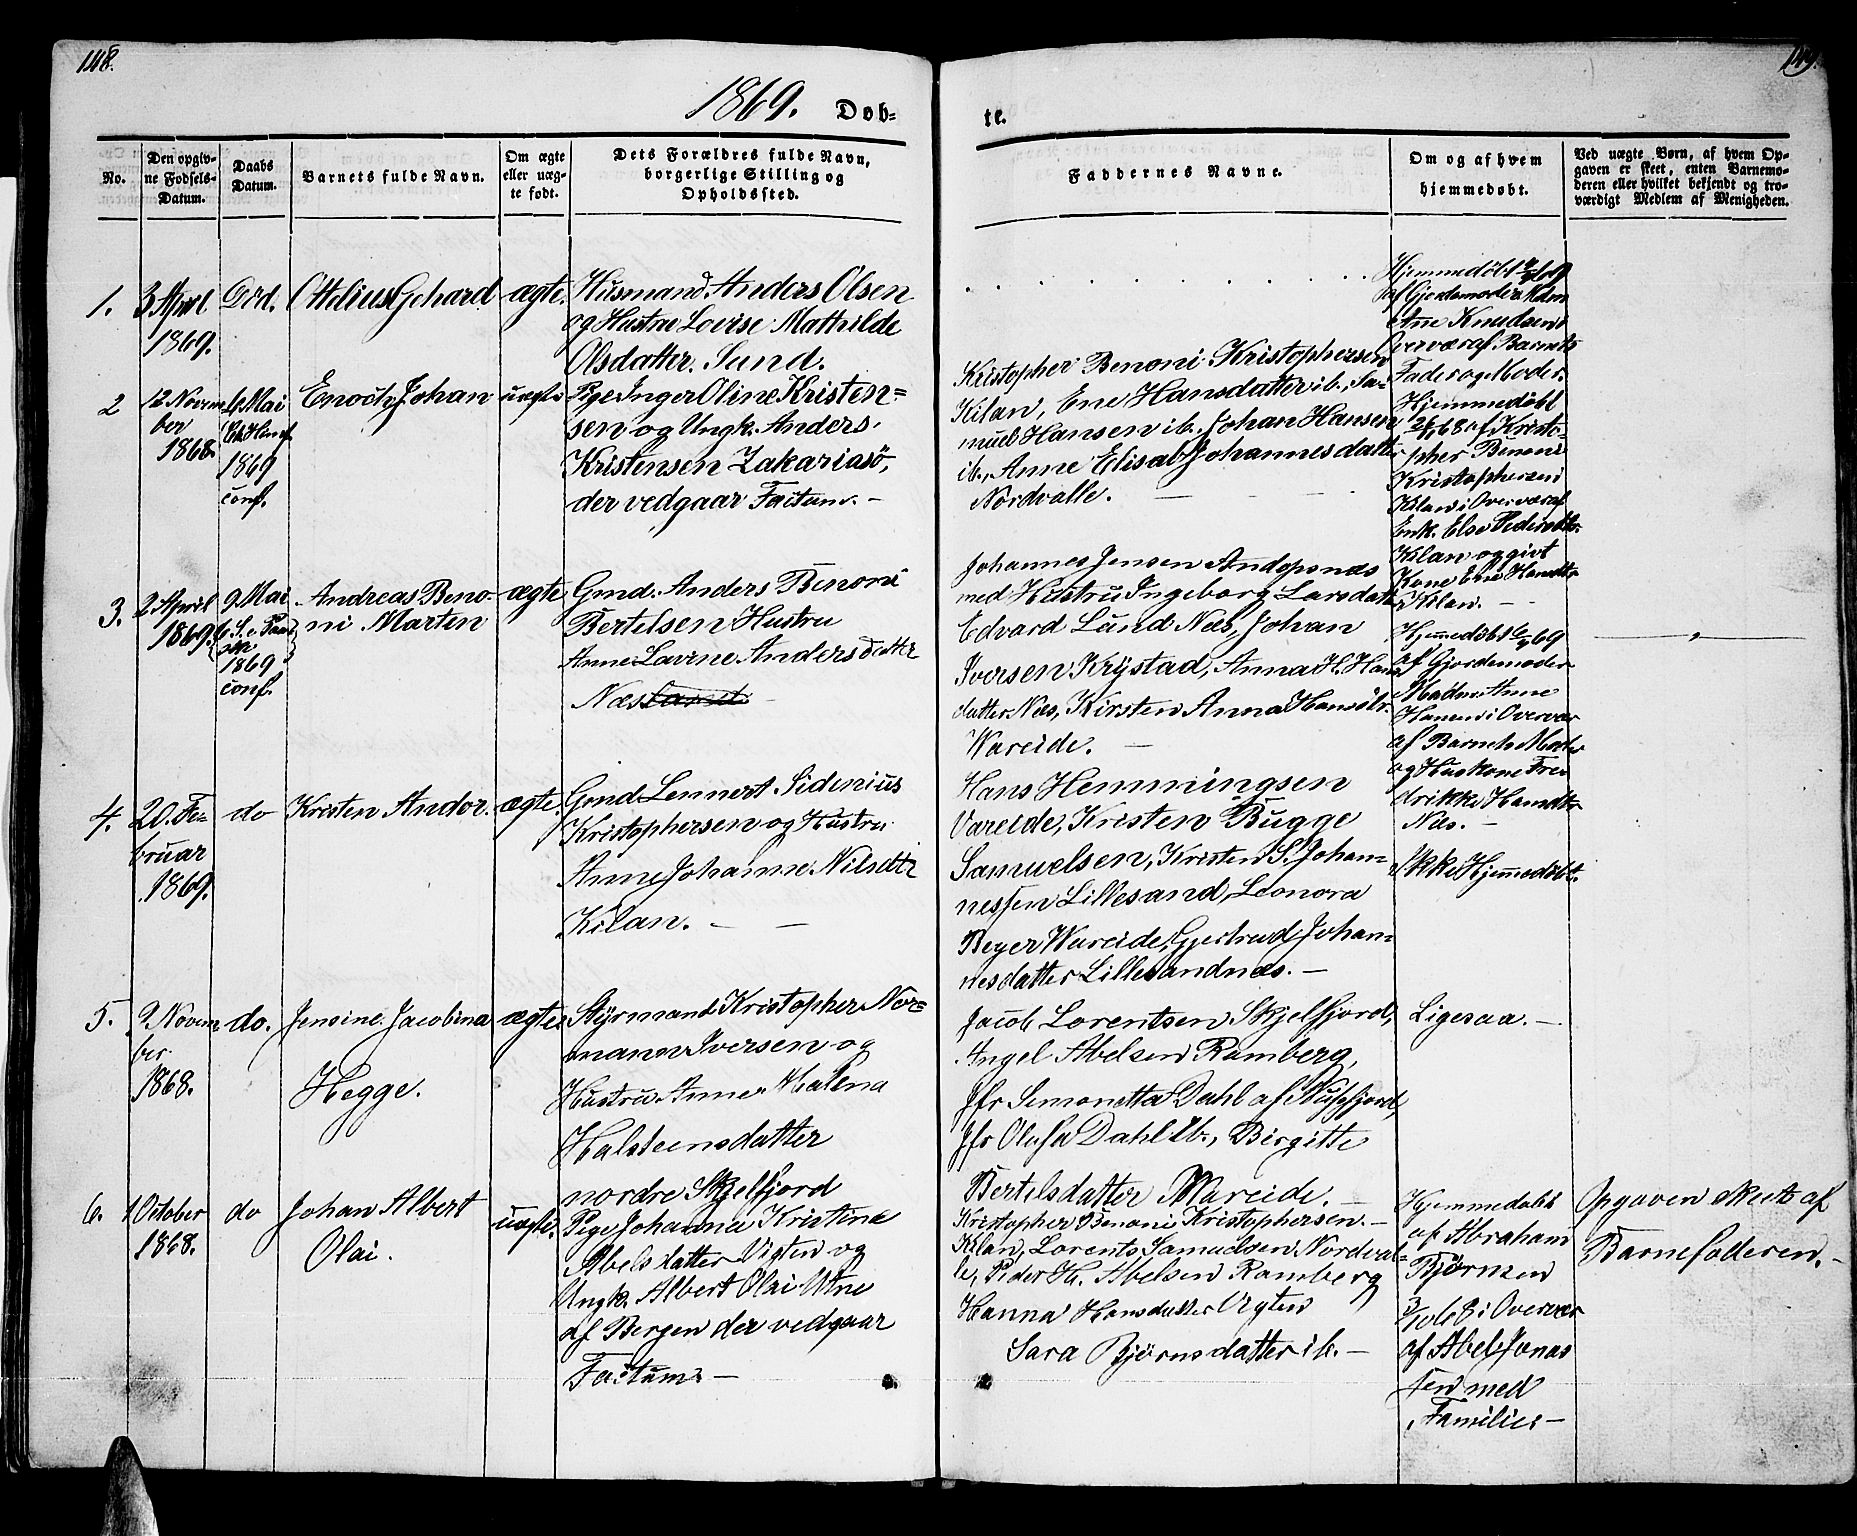 148.
149.
1869. Døb-
te.
No.
Den opgiv-
ne Fødsels-
Datum.
Daabs
Datum.
Barnets fulde Navn.
Om ægte
eller uæg-
te født.
Dets Forældres fulde Navn,
borgerlige Stilling og
Opholdssted.
Faddernes Navne.
Om og af hvem
hjemmedøbt.
Ved uægte Børn, af hvem Op-
gaven er skeet, enten Barnemo-
deren eller hvilket bekjendt og tro-
værdigt Medlem af Menigheden.
1.
3 April
1869.
Død.
Ottelius Gehard
ægte.
Husmand Anders Olsen
og Hustru Lovise Mathilde
Olsdatter. Sund.
Hjemmedøbt
af Gjordemoder Mdm
Ane Knudsen i
Overvær af Barnets
Fader og Moder.
2
12 Novem
ber
1868.
6 Mai
1869
conf.
Enoch Johan
uægte
Pige Inger Oline Kristen=
sen og Ungk. Anders
Kristensen Zakariasø,
der vedgaar Factum. -
Kristopher Benoni Kristophersen
Kilan, Ene Hansdatter ib., Sa-
muel Hansen ib. Johan Hansen
ib., Anne Elisab Johannesdatter
Nordvalle.
Hjemmedøbt
68 af Kristo-
pher Benoni
Kristophersen
Kilan i Overvær af
Enk. Else Pedersdtr.
Kilan og givt
Kone Ene Handtr
Kilan. -
3.
2 April
1869.
9. Mai
6 S. e. Paas
ke
1869
conf.
Andreas Beno-
ni Marten
ægte
Gmd. Anders Benoni
Bertelsen Hustru
Anne Lavine Andersdatter
Næs
Johannes Jensen Andopsnæs
med Hustru Ingeborg Larsdatt
Edvard Lund Næs, Johan
Iversen Krystad, Anna H. Hans
datter Næs, Kirsten Anna Hansdtr.
Wareide. -
Hjemmedøbt 69
af Gjordemoder
Madm Anne
Hansen i Overvær
af Barnets Moder
og Huskone Fre
drikke Hansdtr
Næs. -
4.
20. Fe-
bruar
1869.
do
Kristen Andor.
ægte.
Gmd Lennert Sidenius
Kristophersen og Hustru
Anne Johanne Nilsdtr
Kilan. -
Hans Hemmingsen
Vareide, Kristen Bugge
Samuelsen, Kristen S. Johan-
nessen Lillesand, Leonora
Beyer Wareide, Gjertrud Johan-
nesdatter Lillesandnæs. -
Ikke Hjemmedøbt.
5.
9 Novem
ber
1868.
do.
Jensine Jacobina
Hegge.
ægte
Styrmand Kristopher Nor=
mann Iversen og
Hustru Anne Malena
Halsteensdatter
nordre Skjelfjord
Jacob Lorentsen Skjelfjord,
Angel Abelsen Ramberg,
Jfr Simonetta Dahl af Nusfjord,
Jfr Olufa Dahl ib., Birgitte
Bertelsdatter Mareide.
Ligesaa. -
6.
1 October
1868.
do
Johan Albert
Olai.
uægte.
Pige Johanna Kristine
Abelsdatter Vigten og
Ungk. Albert Olai Utne
af Bergen der vedgaar
Factum -
Kristopher Benoni Kristophersen. -
Kilan, Lorents Samuelsen Nordval-
le, Peder H. Abelsen Ramberg
Hanna Hansdatter Vigten
Sara Bjørnsdatter ib. -
Hjemmedøbt
af Abraham
Bjørnsen
3/10 68 i Overvær
af Abel Jonas
sen med
Familie -
Opgaven skeet af
Barnefaderen. -